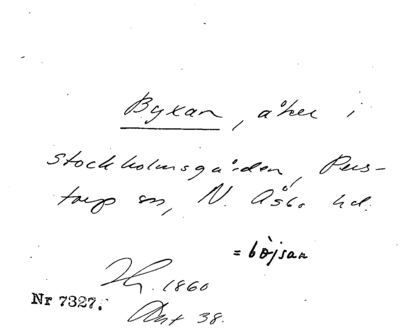 Byxan, åker i
Stockholmsgården, Pers-
torp sn, N. Åsbo hd.
= bòjsan
1860
Nr 7327.
38.